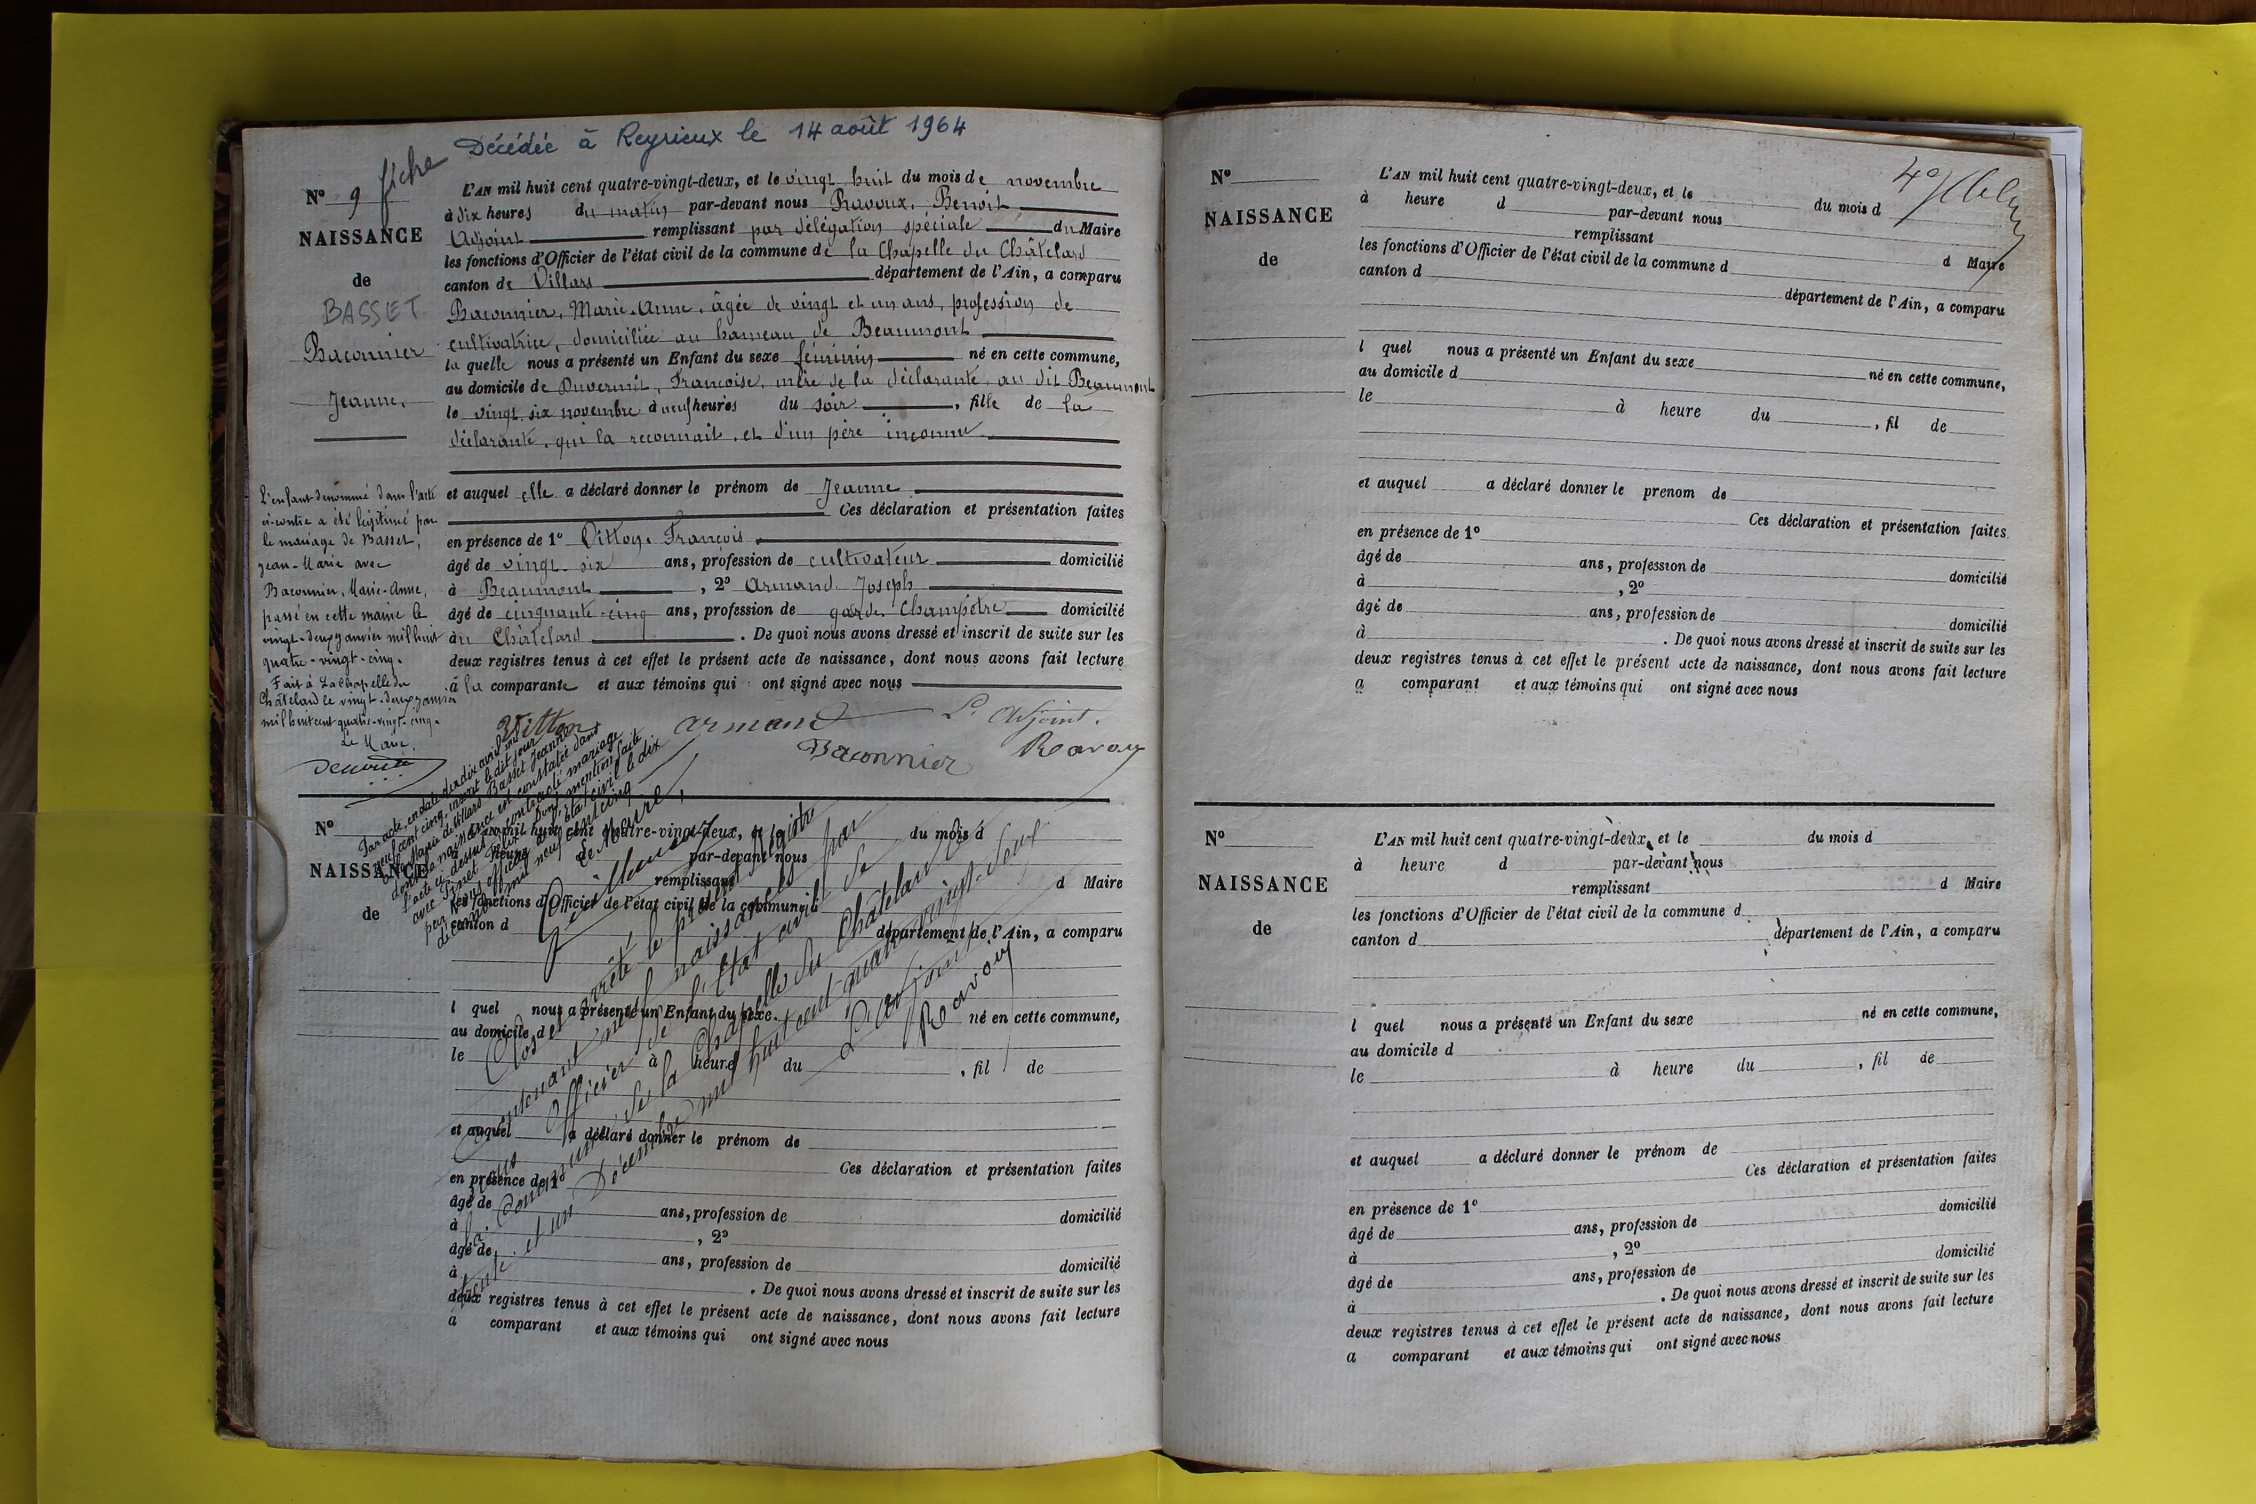 Décédée à Reyrieux le 14 août 1964
fiche
N° 9
NAISSANCE
de
BASSET
Baconnier
Jeanne.
L'AN mil huit cent quatre-vingt-deux, et le vingt huit du mois de novembre
à dix heures du matin par-devant nous Ravoux, Benoit
Adjoint remplissant par délégation spéciale du Maire
les fonctions d'Officier de l'état civil de la commune de la Chapelle du Châtelard
canton de Villars département de l'Ain, a comparu
Baconnier, Marie-Anne, âgée de vingt et un ans, profession de
cultivatrice, domiciliée au hameau de Beaumont
la quelle nous a présenté un Enfant du sexe féminin né en cette commune,
au domicile de Duvernit, Françoise, mère de la déclarante, au dit Beaumont
le vingt six novembre à neuf heures du soir, fille de la
déclarante, qui la reconnait, et d'un père inconnu
et auquel elle a déclaré donner le prénom de Jeanne
Ces déclaration et présentation faites
en présence de 1° Vitton, François
âgé de vingt-six ans, profession de cultivateur domicilié
à Beaumont, 2° Armand Joseph
âgé de cinquante-cinq ans, profession de garde Champêtre domicilié
au Châtelard. De quoi nous avons dressé et inscrit de suite sur les
deux registres tenus à cet effet le présent acte de naissance, dont nous avons fait lecture
à la comparante et aux témoins qui ont signé avec nous
Vitton Armand L'Adjoint.
Baconnier Ravoux
L'enfant dénommé dans l'acte
ci-contre a été légitimé par
le mariage de Basset,
Jean-Marie avec
Baconnier, Marie-Anne,
passé en cette mairie le
vingt-deux janvier mil huit
quatre-vingt-cinq.
Fait à La Chapelle du
Châtelard le vingt-deux janvier
mil huit cent quatre-vingt-cinq.
Le Maire,
Par acte en date du dix avril mil
neuf cent cinq, inscrit le dit jour
à la Mairie de Villars Basset Jeanne
dont la naissance est constatée dans
l'acte ci-dessus a contracté mariage
avec Pinet Félix Dont mention faite
par Nous officier de l'Etat civil le dix
décembre mil neuf cent cinq
Le Maire,
N°
NAISSANCE
de
L'AN mil huit cent quatre-vingt-deux, et le du mois d
à heure d par-devant nous
remplissant d Maire
les fonctions d'Officier de l'état civil de la commune d
canton d département de l'Ain, a comparu
l quel nous a présenté un Enfant du sexe né en cette commune,
au domicile d
le à heure du , fil de
et auquel a déclaré donner le prénom de
Ces déclaration et présentation faites
en présence de 1°
âgé de ans, profession de domicilié
à , 2°
âgé de ans, profession de domicilié
à . De quoi nous avons dressé et inscrit de suite sur les
deux registres tenus à cet effet le présent acte de naissance, dont nous avons fait lecture
a comparant et aux témoins qui ont signé avec nous
Clos et arrêté le présent registre
contenant neuf naissances par
nous Officier de l'Etat civil de
la Commune de la Chapelle du Châtelard le
trente et un Décembre mil huit cent quatre vingt-deux
L'Adjoint
Ravoux
N°
NAISSANCE
de
L'AN mil huit cent quatre-vingt-deux, et le du mois d
à heure d par-devant nous
remplissant d Maire
les fonctions d'Officier de l'état civil de la commune d
canton d département de l'Ain, a comparu
l quel nous a présenté un Enfant du sexe né en cette commune,
au domicile d
le à heure du , fil de
et auquel a déclaré donner le prenom de
Ces déclaration et présentation faites
en présence de 1°
âgé de ans, profession de domicilié
à , 2°
âgé de ans, profession de domicilié
à . De quoi nous avons dressé et inscrit de suite sur les
deux registres tenus à cet effet le présent acte de naissance, dont nous avons fait lecture
a comparant et aux témoins qui ont signé avec nous
N°
NAISSANCE
de
L'AN mil huit cent quatre-vingt-deux, et le du mois d
à heure d par-devant nous
remplissant d Maire
les fonctions d'Officier de l'état civil de la commune d
canton d département de l'Ain, a comparu
l quel nous a présenté un Enfant du sexe né en cette commune,
au domicile d
le à heure du , fil de
et auquel a déclaré donner le prénom de
Ces déclaration et présentation faites
en présence de 1°
âgé de ans, profession de domicilié
à , 2°
âgé de ans, profession de domicilié
à . De quoi nous avons dressé et inscrit de suite sur les
deux registres tenus à cet effet le présent acte de naissance, dont nous avons fait lecture
a comparant et aux témoins qui ont signé avec nous